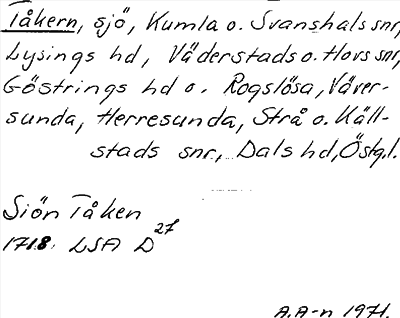 Tåkern, sjö, Kumla o. Svanshals snr,
Lysings hd, Väderstads o. Hovs snr,
Göstrings hd o. Rogslösa, Väver-
sunda, Herresunda, Strå o. Käll-
stads snr, Dals hd, Östg.l.
Siön Tåken
1718. LSA D 27
A.A-n 1971.